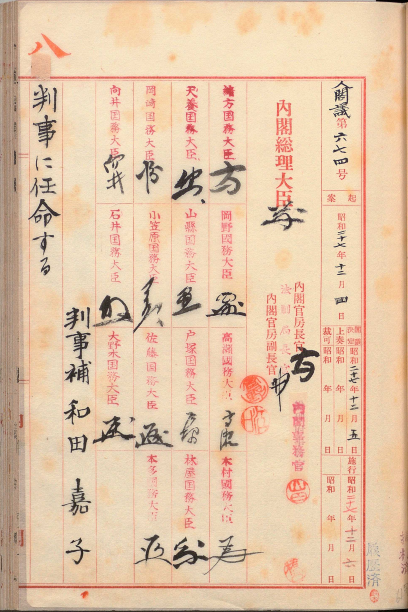 八
閣議第六七四号
起案 昭和二十七年十二月四日
閣議決定 昭和二七年十二月五日
上奏 昭和 年 月 日
裁可 昭和 年 月 日
施行 昭和二十七年十二月六日
昭和 年 月 日
内閣総理大臣
内閣官房長官
内閣官房副長官
緒方国務大臣
岡野国務大臣
木村国務大臣
山縣国務大臣
戸塚国務大臣
林屋国務大臣
岡崎国務大臣
小笠原国務大臣
佐藤国務大臣
向井国務大臣
石井国務大臣
大野木国務大臣
判事補 和田嘉子
判事に任命する